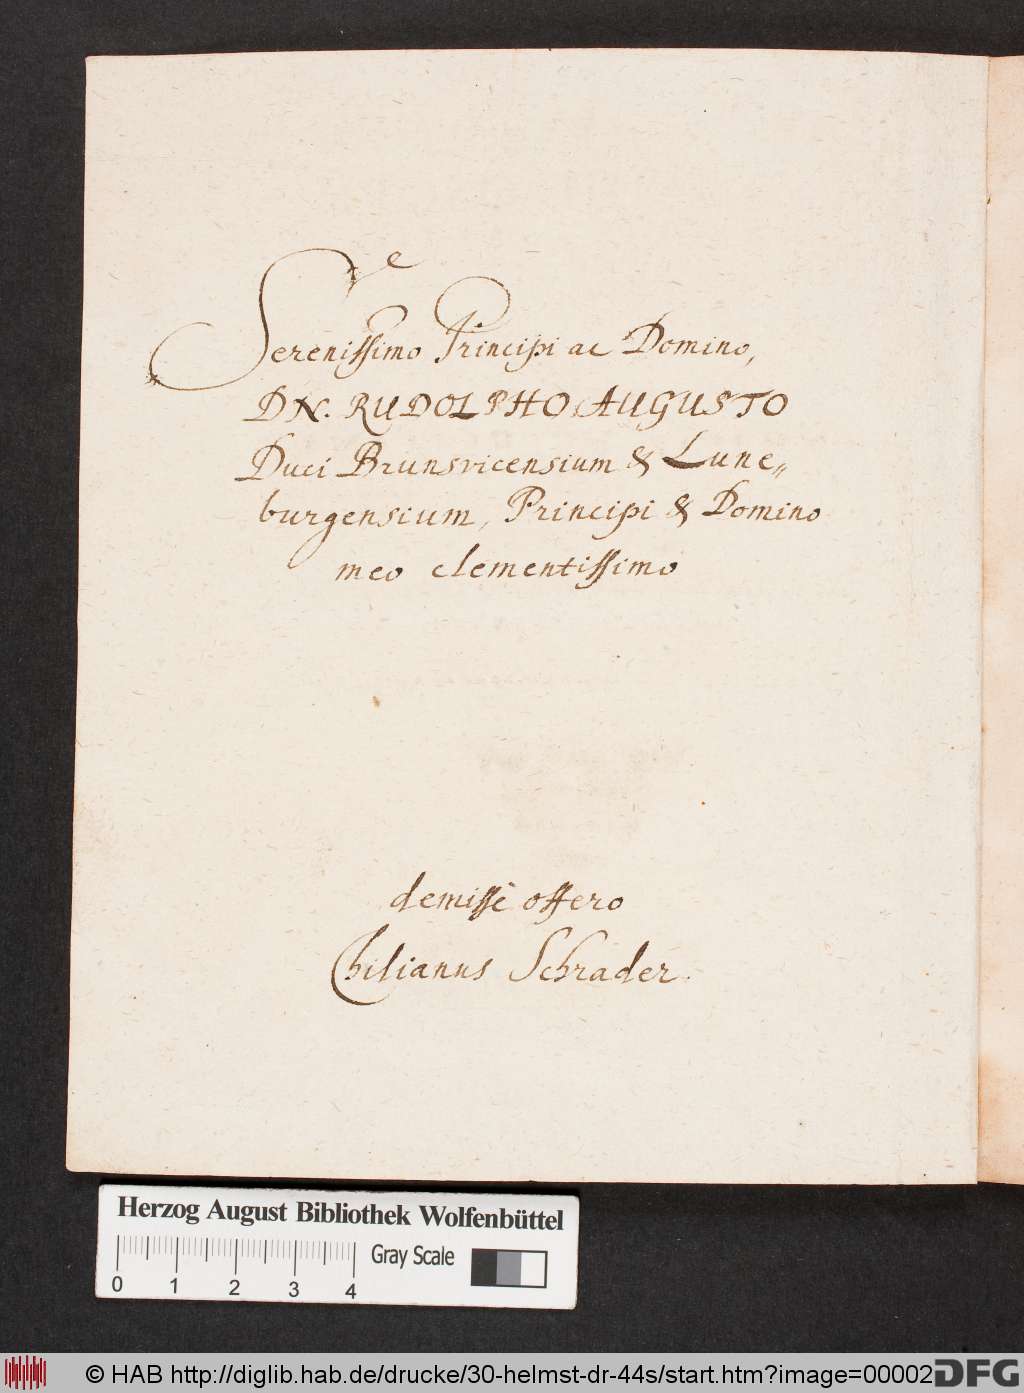 Serenissimo Principi ac Domino,
DN. RUDOLPHO AUGUSTO
Duci Brunsvicensium & Lune„
burgensium, Principi & Domino
meo clementissimo
demissè offero
Chilianus Schrader.
Herzog August Bibliothek Wolfenbüttel
Gray Scale
0 1 2 3 4
© HAB http://diglib.hab.de/drucke/30-helmst-dr-44s/start.htm?image=00002
DFG